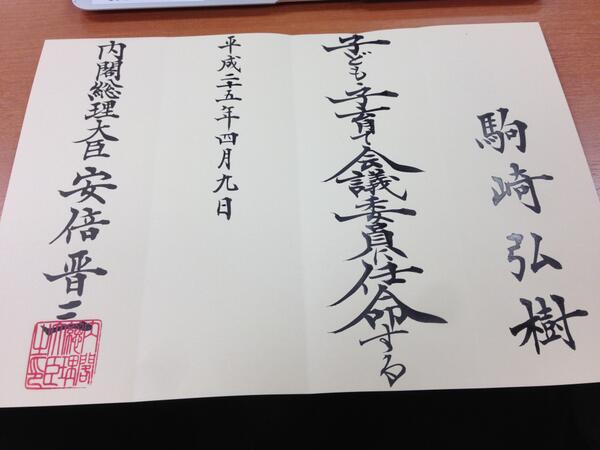 駒崎弘樹
子ども・子育て会議委員に任命する
平成二十五年四月九日
内閣総理大臣 安倍晋三
内閣総理大臣之印